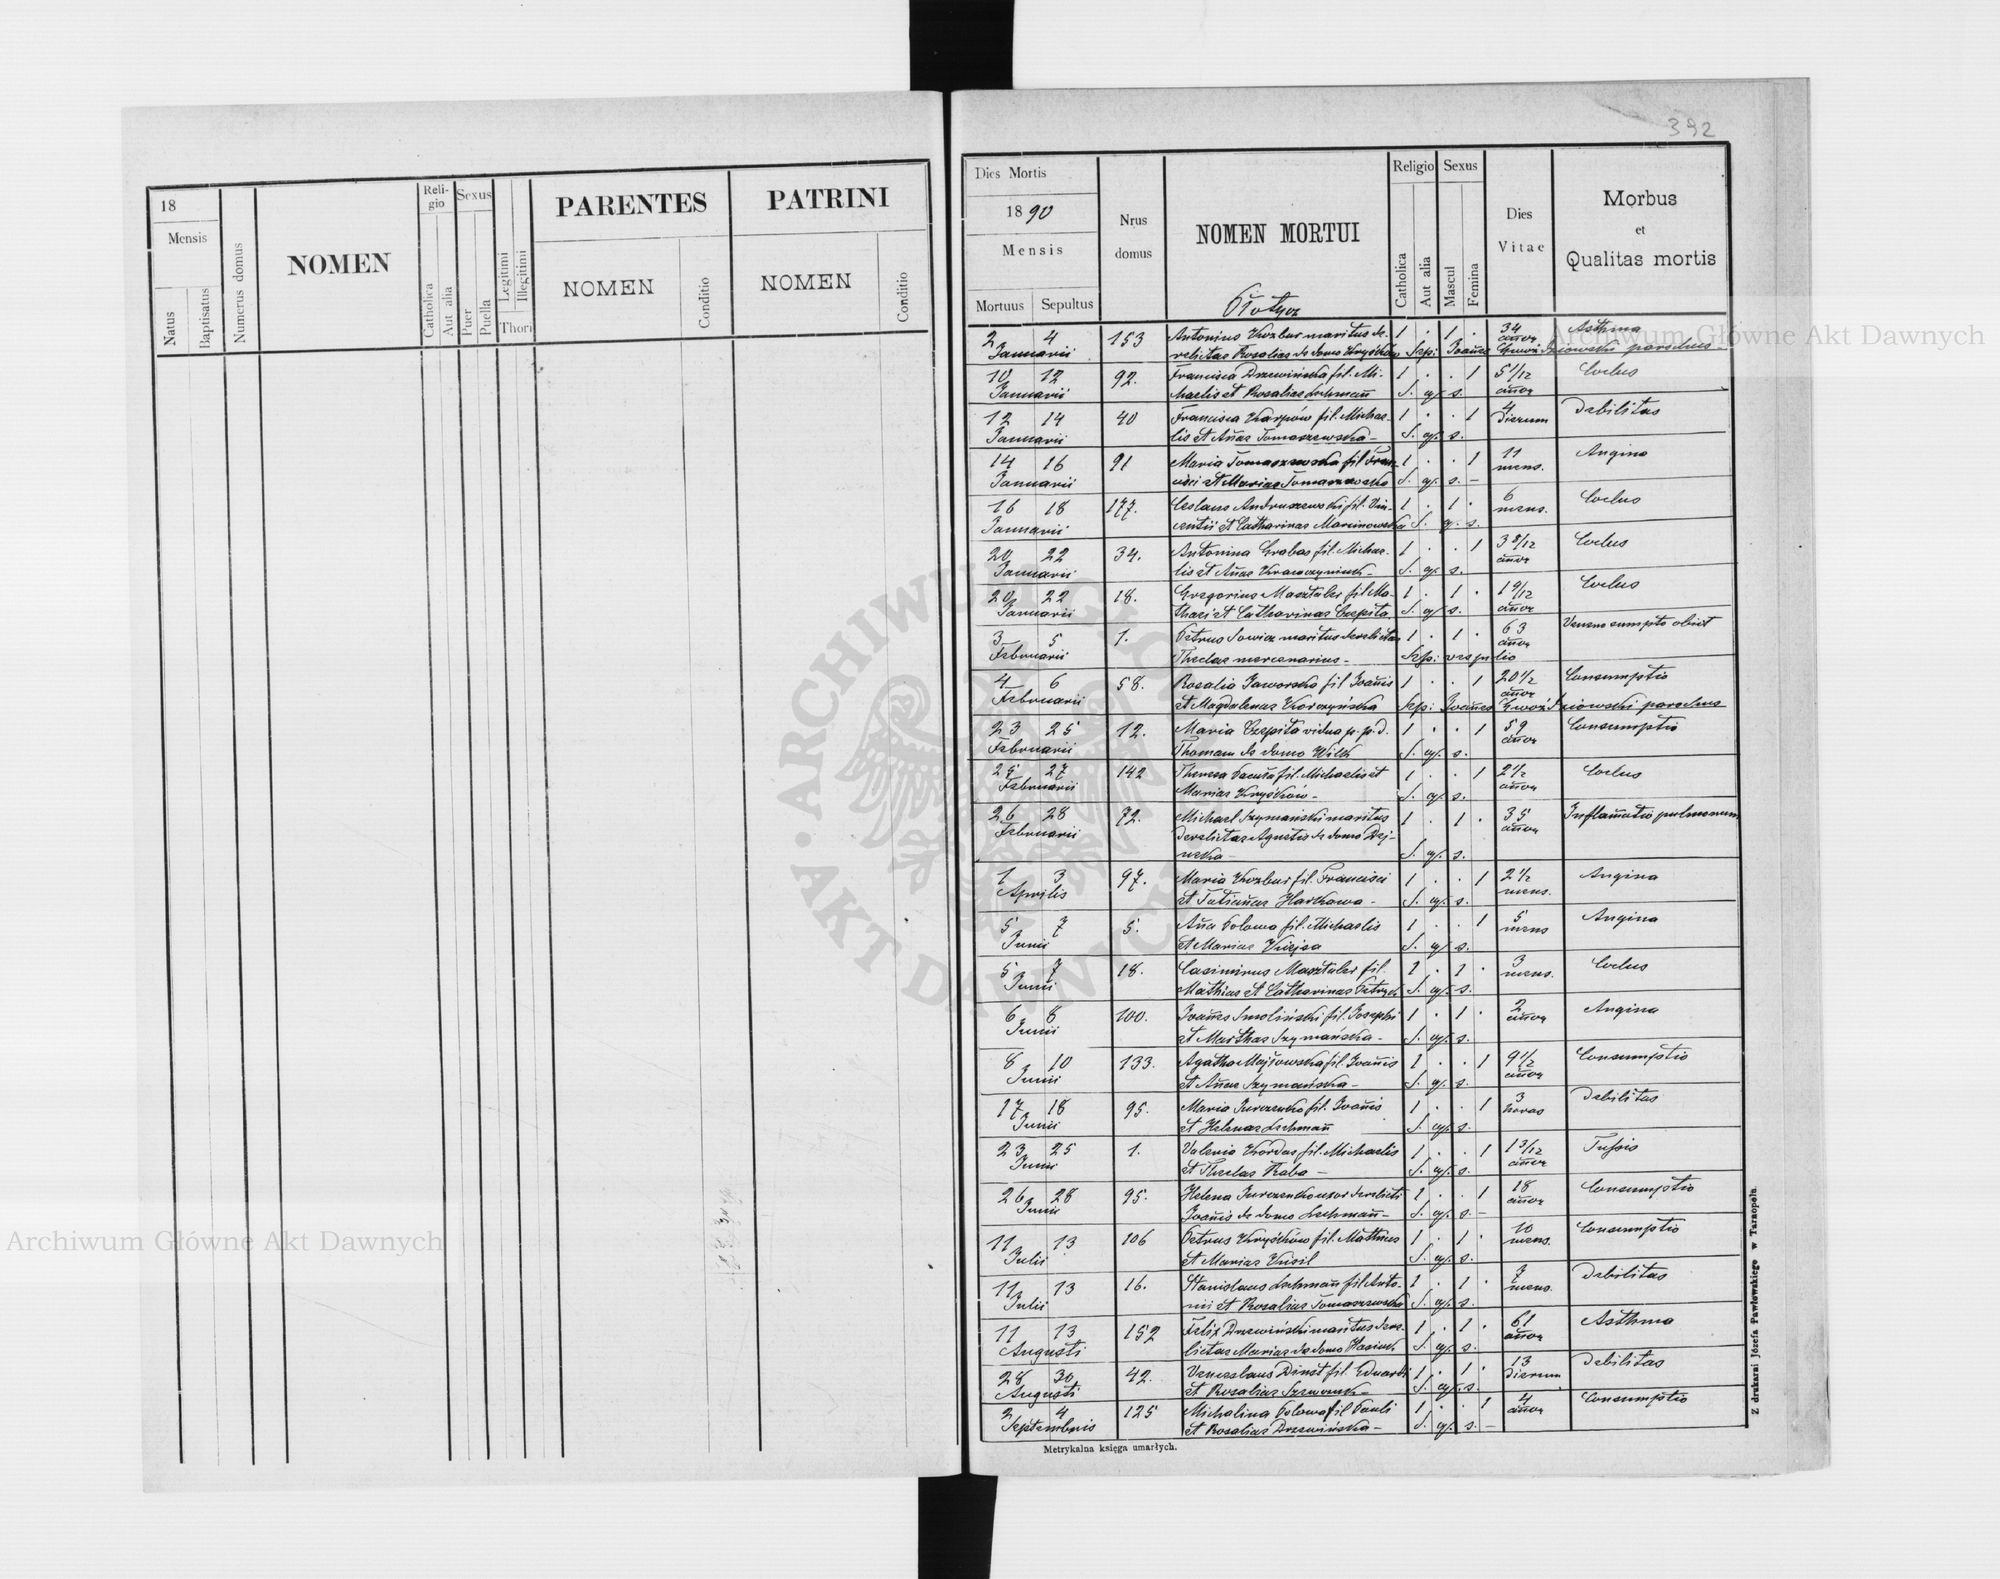 392
18
Mensis
Natus
Baptisatus
Numerus domus
NOMEN
Reli-
gio
Catholica
Aut alia
Sexus
Puer
Puella
Legitimi
Illegitimi
Thori
PARENTES
NOMEN
Conditio
PATRINI
NOMEN
Conditio
Dies Mortis
1890
Mensis
Mortuus Sepultus
Nrus
domus
NOMEN MORTUI
Religio
Catholica
Aut alia
Sexus
Mascul
Femina
Dies
Vitae
Morbus
et
Qualitas mortis
2 4 153 Antonius Kozbur maritus de- 1 . 1 . 34 Asthma
Januarii relictae Rosaliae de domo Sep: Joañes parochus
10 12 92. Francisca Drzewińska fil. Mi- 1 . . 1 5 1/12
Januarii chaelis et Rosaliae Lehmañ S. q. s. añor
12 14 40 Francisca Karpów fil. Michae- 1 . . 1 4 Debilitas
Januarii lis et Añae Tomaszewska - S. q. s. dierum
14 16 91 Maria Tomaszewska fil. Fran- 1 . . 1 11 Angina
Januarii cisci et Mariae Tomaszewska S. q. s. - mens.
16 18 177. Ceslaus Andruszewski fil. Vin- 1 . 1 . 6
Januarii centii et Catharinae Marcinowska S. q. s. mens.
20 22 34. Antonina Grabas fil. Michae- 1 . . 1 3 8/12
Januarii lis et Añae S. q. s. añor
20 22 18. Gregorius Masztaler fil. Ma- 1 . 1 . 1 9/12
Januarii thaei et Catharinae Czepita S. q. s. añor
3 5 1. Petrus Sowicz maritus derelictae 1 . 1 . 63 Veneno sumpto obiit
Februarii Theclae mercenarius - Sep: vespulio añor
4 6 58. Rosalia Jaworska fil Joañis 1 . . 1 20 1/2 Consumptio
Februarii et Magdalenae Korczyńska Sep: Joañes parochus añor
23 25 12. Maria Czepita vidua p. p. d. 1 . . 1 59 Consumptio
Februarii Thomam de domo Wilk S. q. s. añor
25 27 142 Theresa fil. Michaelis et 1 . . 1 2 1/2
Februarii Mariae Kryśków - S. q. s. añor
26 28 72. Michael Szymański maritus 1 . 1 . 35 Inflam̃atio pulmonum
Februarii derelictae Agnetis de domo S. q. s. añor
1 3 97. Maria Kozbur fil. Francisci 1 . . 1 2 1/2 Angina
Aprilis et Tatiañae Harkowa - S. q. s. mens.
5 7 5. Aña Polowa fil. Michaelis 1 . . 1 5 Angina
Junii et Mariae S. q. s. mens
5 7 18. Casimirus Masztaler fil. 1 . 1 . 3
Junii Mathiae et Catharinae S. q. s. mens.
6 8 100. Joañes Smoliński fil. Josephi 1 . 1 . 2 Angina
Junii et Marthae Szymańska - S. q. s. añor
8 10 133. Agatha fil. Joañis 1 . . 1 9 1/2 Consumptio
Junii et Añae Szymańska - S. q. s. añor
17 18 95. Maria Jurczenko fil. Joañis 1 . . 1 3 Debilitas
Junii et Helenae Lehmañ S. q. s. horas
23 25 1. Valeria Kordas fil. Michaelis 1 . . 1 1 3/12 Tussis
Junii et Theclae Raba - S. q. s. añor
26 28 95. Helena Jurczenko uxor derelicti 1 . . 1 18 Consumptio
Junii Joañis de domo Lehmañ - S. q. s. - añor
11 13 106 Petrus Kryśków fil. Mathaei 1 . 1 . 10 Consumptio
Julii et Mariae Kusil S. q. s. mens.
11 13 16. Stanislaus Lehmañ fil Anto- 1 . 1 . Debilitas
Julii nii et Rosaliae Tomaszewska S. q. s. mens.
11 13 152 Felix Drzewiński maritus dere- 1 . 1 . 61 Asthma
Augusti lictae Mariae de domo S. q. s. añor
28 30 42. Venceslaus Dinst fil. Eduardi 1 . 1 . 13 Debilitas
Augusti et Rosaliae S. q. s. dierum
2 4 125 Michalina Polowa fil Pauli 1 . . 1 4 Consumptio
Septembris et Rosaliae Drzewińska - S. q. s. - añor
Metrykalna księga umarłych.
Z drukarni Józefa Pawłowskiego w Tarnopolu
Archiwum Główne Akt Dawnych
Archiwum Główne Akt Dawnych
ARCHIWUM GŁÓWNE AKT DAWNYCH